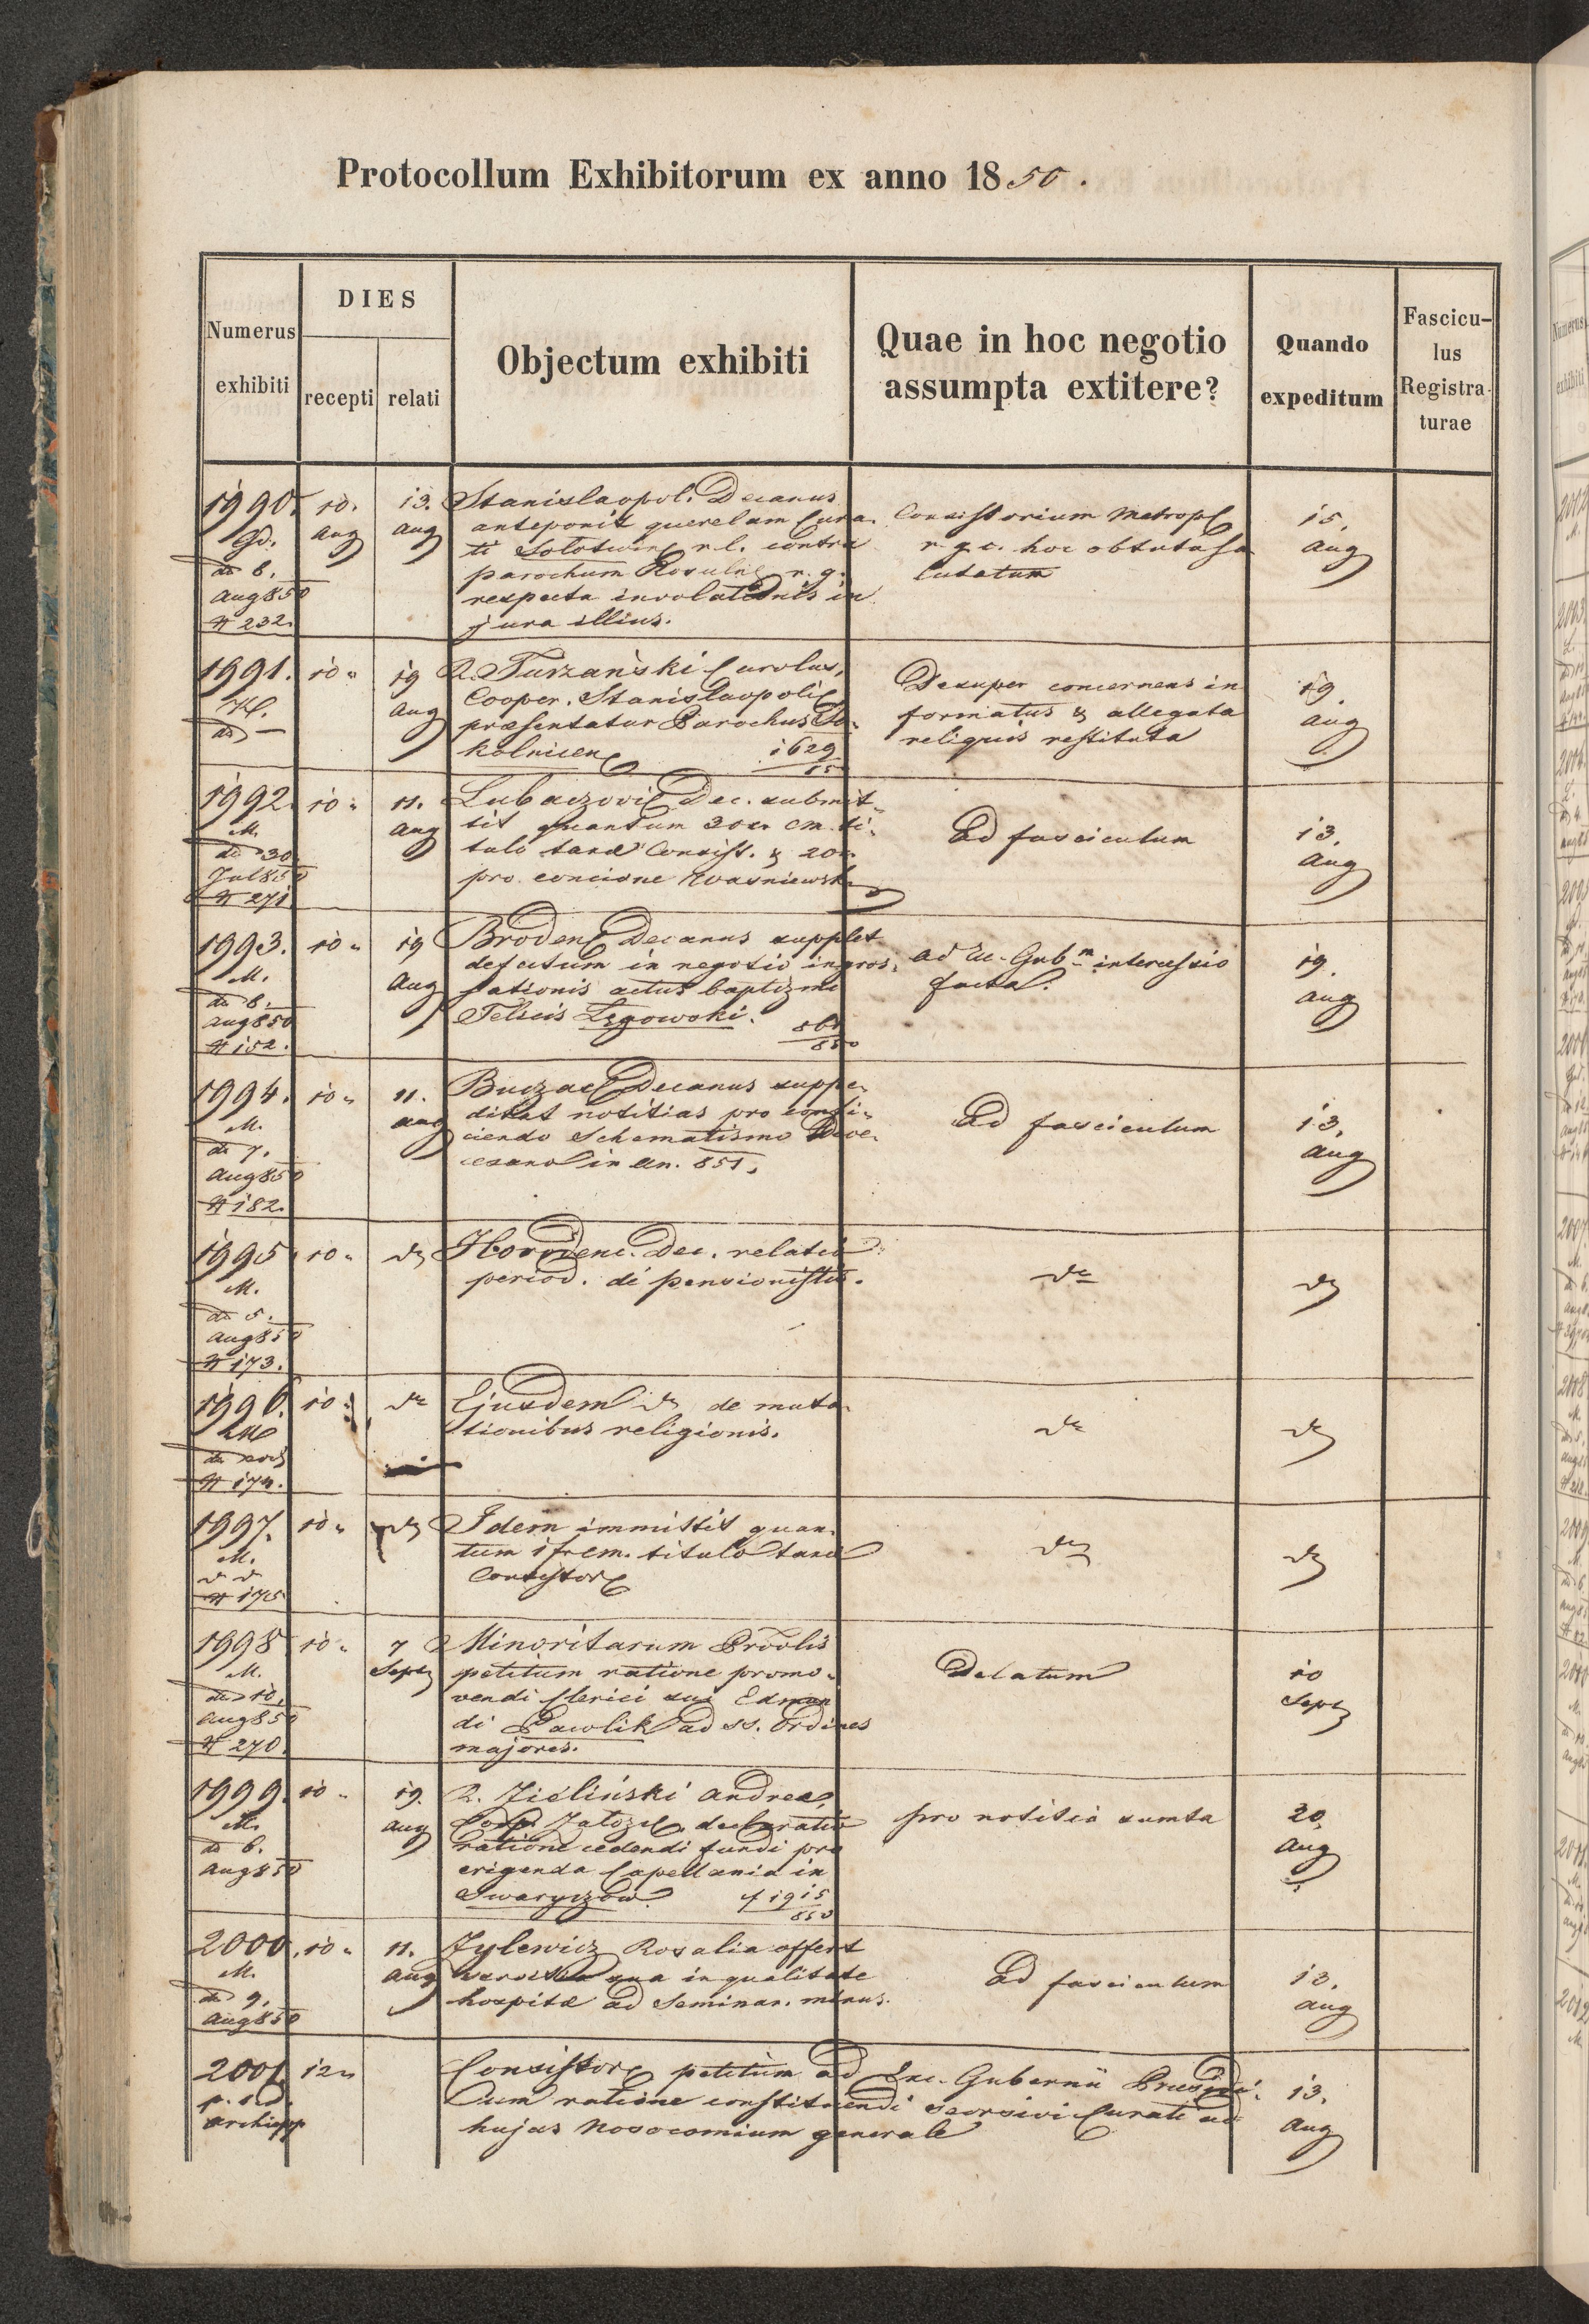 Protocollum Exhibitorum ex anno 1850.
Numerus
exhibiti
DIES
recepti
relati
Objectum exhibiti
Quae in hoc negotio
assumpta extitere?
Quando
expeditum
Fascicu-
lus
Registra-
turae
1990.
Gd.
do 8.
Aug 850
N 232.
10.
Aug
13.
Aug
Stanislaopol. Decanus
anteponit querelam Cura-
ti Solotwin r. l. contra
parochum Rosuln r. g.
respectu involationis in
jura illius.
Consistorium Metropl
r. g. c. hoc obtutu
15.
Aug
1991.
10 "
19
Aug
R. Turzański Carolus,
Cooper. Stanislaopoli
praesentatur Parochus So-
kolnicen
1629
850
Desuper concernens in
formatus & allegata
reliquis restituta
19.
Aug
1992.
M.
do 30
Jul 850
N 271.
10 "
11.
Aug
Lubaczovi Dec. submit-
tit quantum 30 xr CM. ti-
tulo taxae Consist. & 20 xr
pro concione Wasniewsk
Ad fasciculum
13.
Aug
1993.
M.
do 8.
Aug 850
N 152.
10 "
19
Aug
Broden Decanus supplet
defectum in negotio ingros-
sationis actus baptizmi
Felicis Łęgowski.
861
850
Ad Ex. Gubm intercessio
facta.
19.
Aug
1994.
M.
do 7.
Aug 850
N 182.
10 "
11.
Aug
Buczac Decanus suppe-
ditat notitias pro confi-
ciendo Schematismo Dioe-
cesano in an. 851.
Ad fasciculum
13.
Aug
1995
M.
do 5.
Aug 850
N 173.
10 "
do
Horodenc. Dec. relatio
period. de pensionistis.
do
do
1996.
N 174.
10 "
do
Ejusdem do de muta-
tionibus religionis.
do
do
1997.
M.
do do
N 175
10 "
do
Idem immittit quan-
tum 1 fr cm. titulo taxae
Consistor
do
do
1998
M.
do 10.
Aug 850
N 270.
10 "
7
Sept
Minoritarum Provlis
petitum ratione promo-
vendi Clerici sui Edmun
di Pawlik ad ss. Ordines
majores.
Delatum
10
Sept
1999.
M.
do 6.
Aug 850
10 "
19.
Aug
R. Zieliński Andreae,
Coop. declaratio
ratione cedendi fundi pro
erigenda Capellania in
Swaryczów.
f 1915
850
pro notitia sumta
20.
Aug
2000.
M.
do 9.
Aug 850
10 "
11.
Aug
Zylewicz Rosalia offert
servitia sua in qualitate
hospitae ad Seminar. minus.
Ad fasciculum
13.
Aug
2001
p. s. d.
Archiepp
12 "
Consistor petitum ad Exc. Gubernii Praesidi-
um ratione constituendi seorsivi Curati ad
hujas Nosocomium generale
13.
Aug